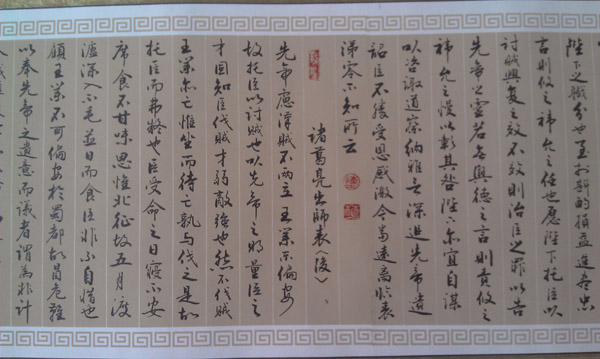 陛下之職分也至於斟酌損益進盡忠
言則攸之禕允之任也願陛下托臣以
討賊興復之效不效則治臣之罪以告
先帝之靈若無興德之言則責攸之
禕允之慢以彰其咎陛下亦宜自謀
以咨諏道察納雅言深追先帝遺
詔臣不勝受恩感激今當遠離臨表
涕零不知所云
諸葛亮出師表（後）
先帝慮漢賊不兩立王業不偏安
故托臣以討賊也以先帝之明量臣之
才固知臣伐賊才弱敵強也然不伐賊
王業亦亡惟坐而待亡孰與伐之是故
托臣而弗疑也臣受命之日寢不安
席食不甘味思惟北征故五月渡
瀘深入不毛並日而食臣非不自惜也
顧王業不可偏安於蜀都故冒危難
以奉先帝之遺意而議者謂為非計